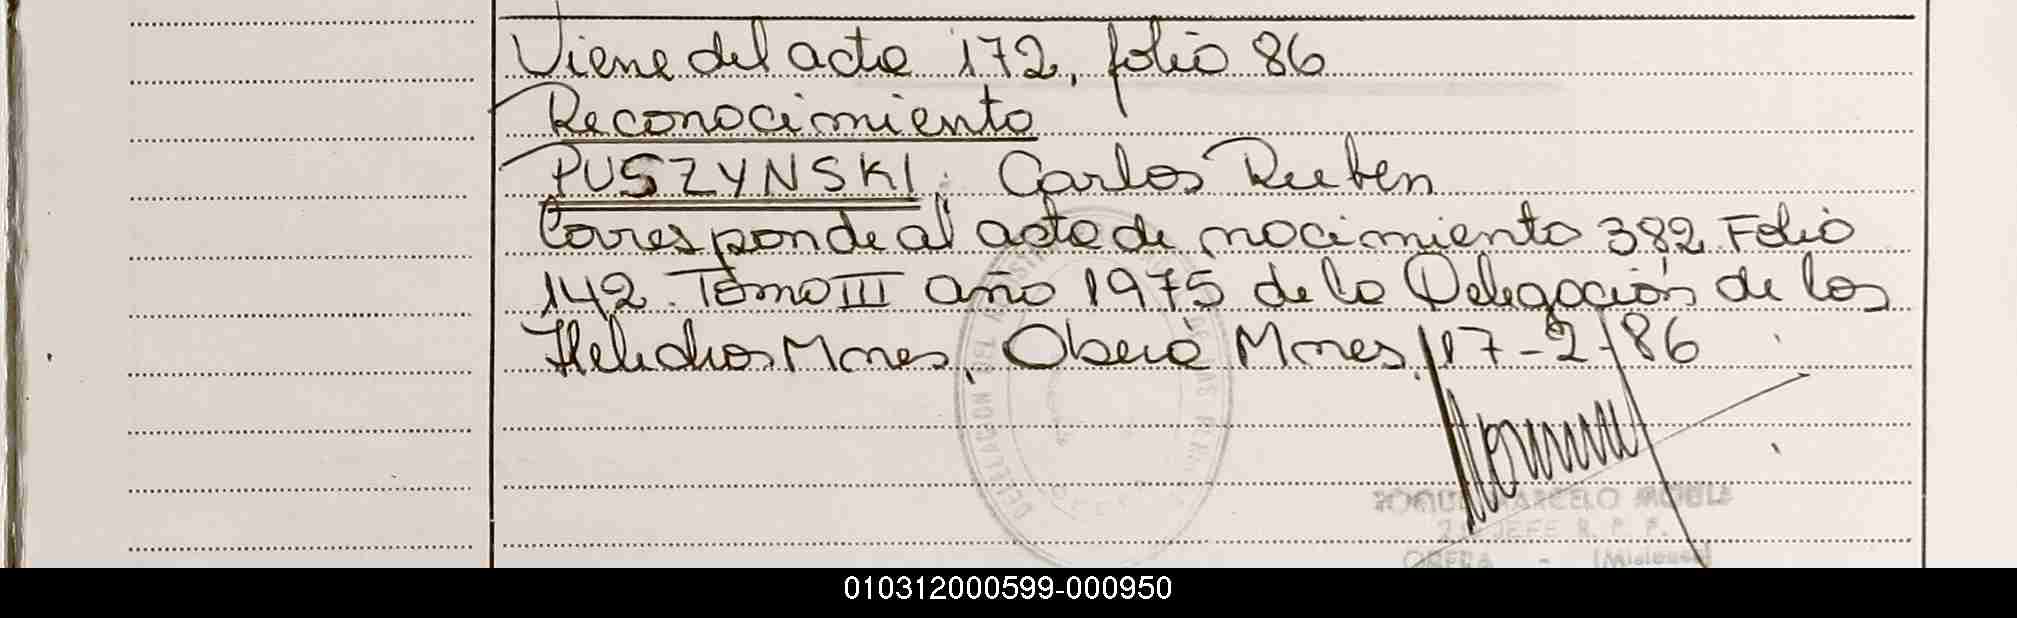 Viene del acta 172, folio 86
Reconocimiento
PUSZYNSKI, Carlos Ruben
Corresponde al acta de nacimiento 382 Folio
142. Tomo III año 1975 de la Delegación de los
Helechos Mnes, Oberá Mnes, 17-2-86
MARCELO
2º JEFE R. P. P.
OBERA - (Misiones)
010312000599-000950